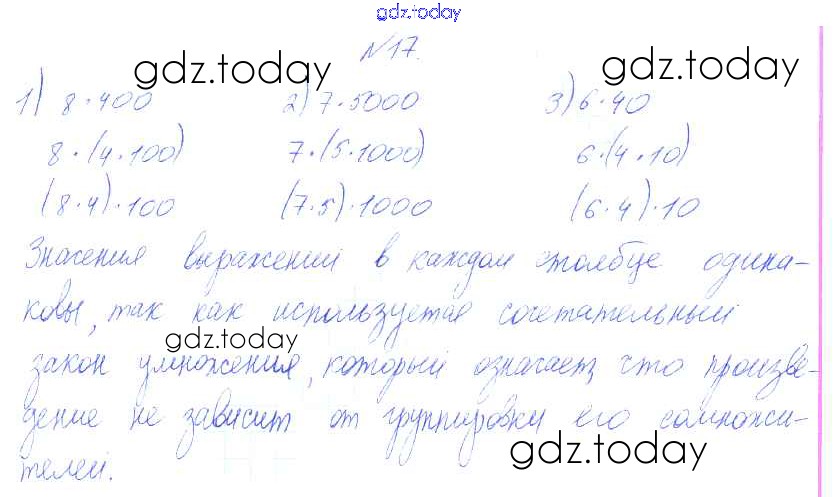 gdz.today
№17.
gdz.today gdz.today
1) 8·400 2) 7·5000 3) 6·40
8·(4·100) 7·(5·1000) 6·(4·10)
(8·4)·100 (7·5)·1000 (6·4)·10
Значения выражений в каждом столбце одина-
ковы, так как используется сочетательный
gdz.today
закон умножения, который означает, что произве-
дение не зависит от группировки его сомножи-
телей.
gdz.today